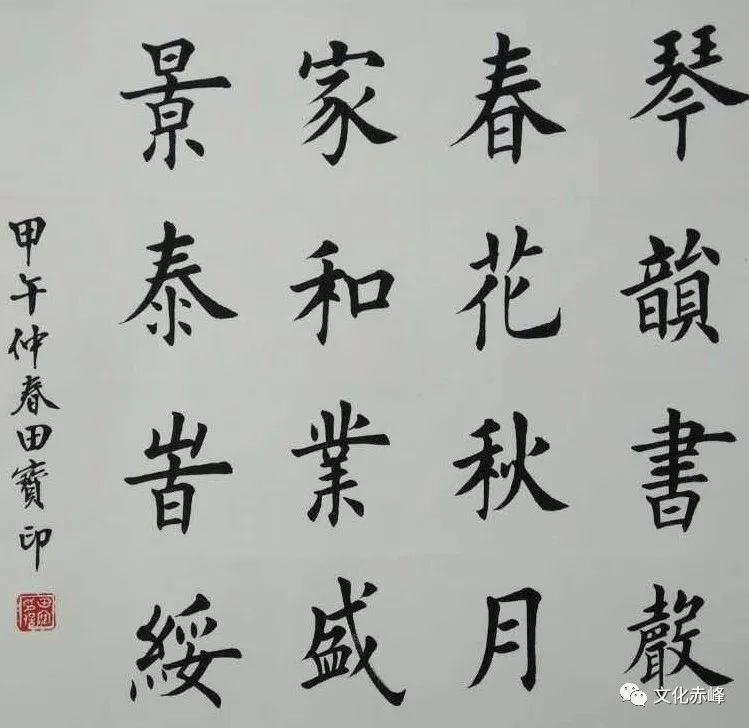 琴韻書聲
春花秋月
家和業盛
景泰旹綏
甲午仲春田寶印
文化赤峰